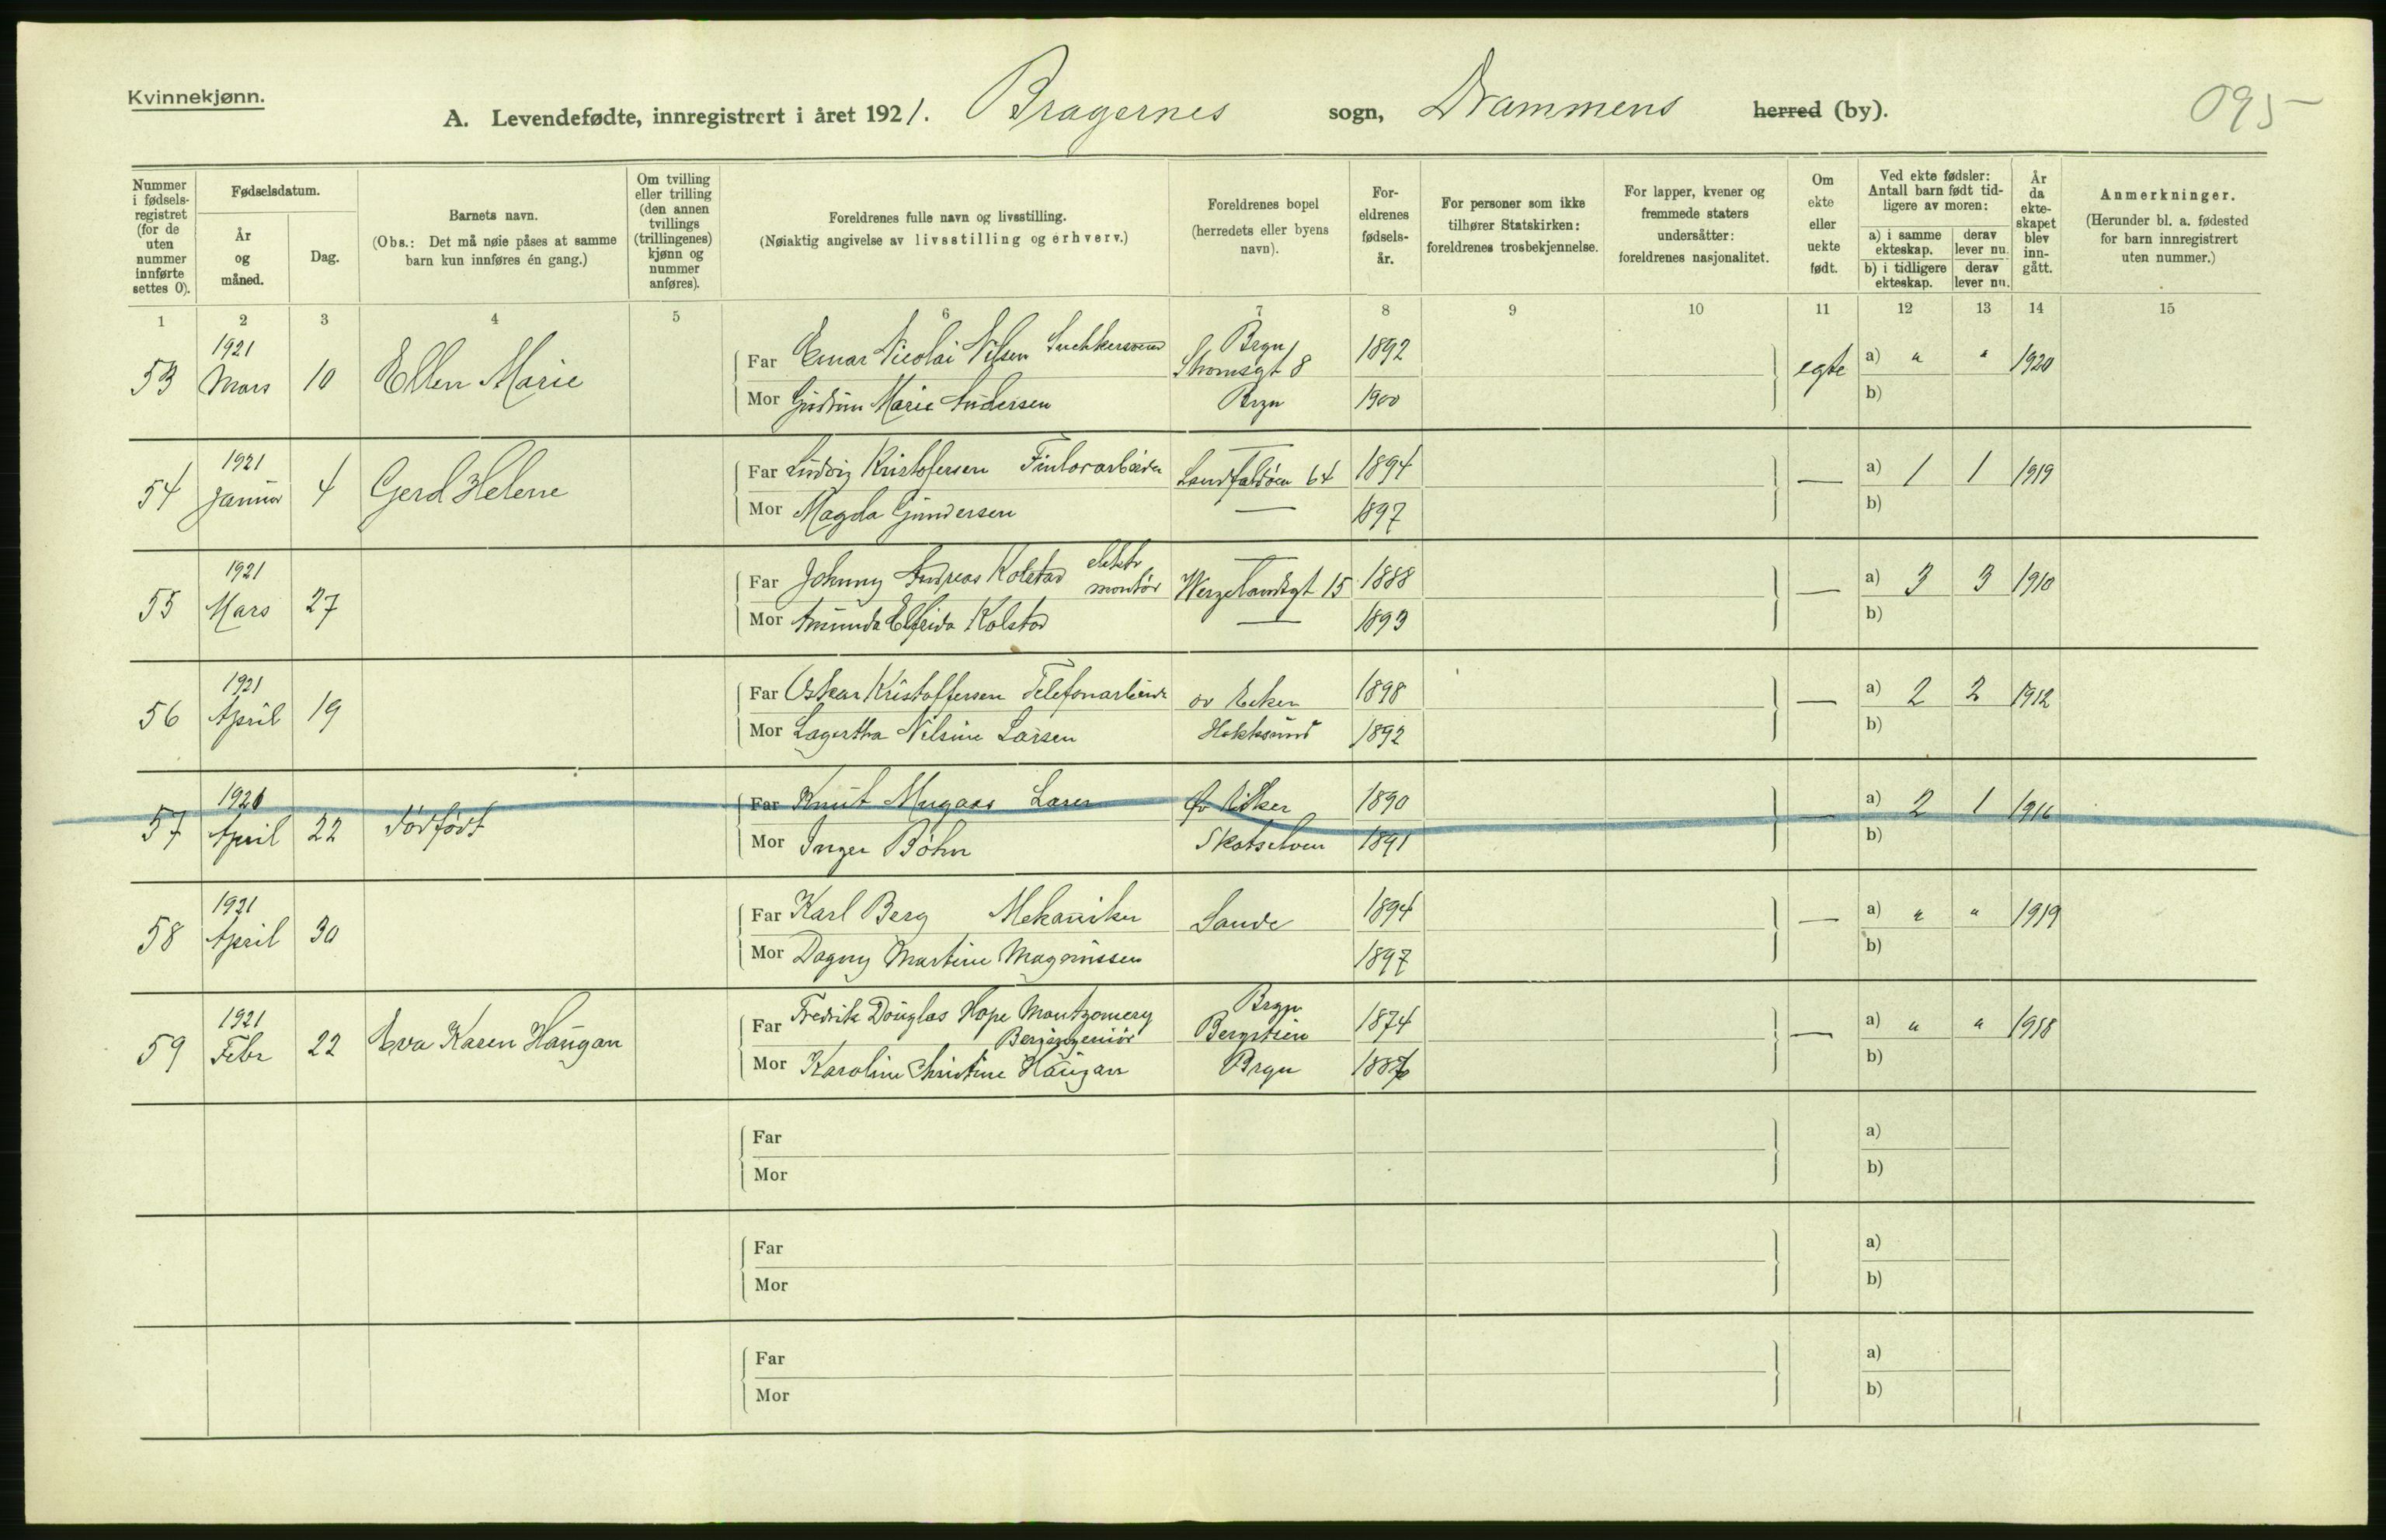 Kvinnekjønn.
A. Levendefødte, innregistrert i året 1921. Bragernes sogn, Drammens herred (by).
095
Nummer i fødselsregistret (for de uten nummer innførte settes 0).
Fødselsdatum.
År og måned.
Dag.
Barnets navn.
(Obs.: Det må nøie påses at samme barn kun innføres én gang.)
Om tvilling eller trilling (den annen tvillings (trillingenes) kjønn og nummer anføres).
Foreldrenes fulle navn og livsstilling.
(Nøiaktig angivelse av livsstilling og erhverv.)
Foreldrenes bopel
(herredets eller byens navn).
Foreldrenes fødselsår.
For personer som ikke tilhører Statskirken: foreldrenes trosbekjennelse.
For lapper, kvener og fremmede staters undersåtter: foreldrenes nasjonalitet.
Om ekte eller uekte født.
Ved ekte fødsler: Antall barn født tidligere av moren:
a) i samme ekteskap.
derav lever nu.
b) i tidligere ekteskap.
derav lever nu.
År da ekteskapet blev inngått.
Anmerkninger.
(Herunder bl. a. fødested for barn innregistrert uten nummer.)
1 2 3 4 5 6 7 8 9 10 11 12 13 14 15
53 1921 Mars 10 Ellen Marie
Far Einar Nicolai Nilsen Snekkersvend Brgn Strømsgt 8 1892 egte a) " " 1920
Mor Gudrun Marie Andersen Brgn 1900 b)
54 1921 Januar 4 Gerd Helene
Far Ludvig Kristofersen Landfaldøen 64 1894 — a) 1 1 1919
Mor Magda Gundersen — 1897 b)
55 1921 Mars 27
Far Johnny Andreas Kolstad elektr montør Wergelandsgt 15 1888 — a) 3 3 1910
Mor Amunda Elfrida Kolstad — 1893 b)
56 1921 April 19
Far Oskar Kristoffersen Telefonarbeider øv Eker 1898 — a) 2 2 1912
Mor Lagertha Nilsine Larsen Hokksund 1892 b)
57 1921 April 22 dødfødt
Far Knut Mugaas Øv Eiker 1890 — a) 2 1 1916
Mor Inger Bøhn Skotselven 1891 b)
58 1921 April 30
Far Karl Berg Mekaniker Sande 1894 — a) " " 1919
Mor Dagny Martine Magnussen 1897 b)
59 1921 Febr 22 Eva Karen Haugan
Far Fredrik Douglas Hope Montgomery Bergingeniør Brgn Bergstien 1874 — a) " " 1918
Mor Karoline Christine Haugan Brgn b)
Far a)
Mor b)
Far a)
Mor b)
Far a)
Mor b)